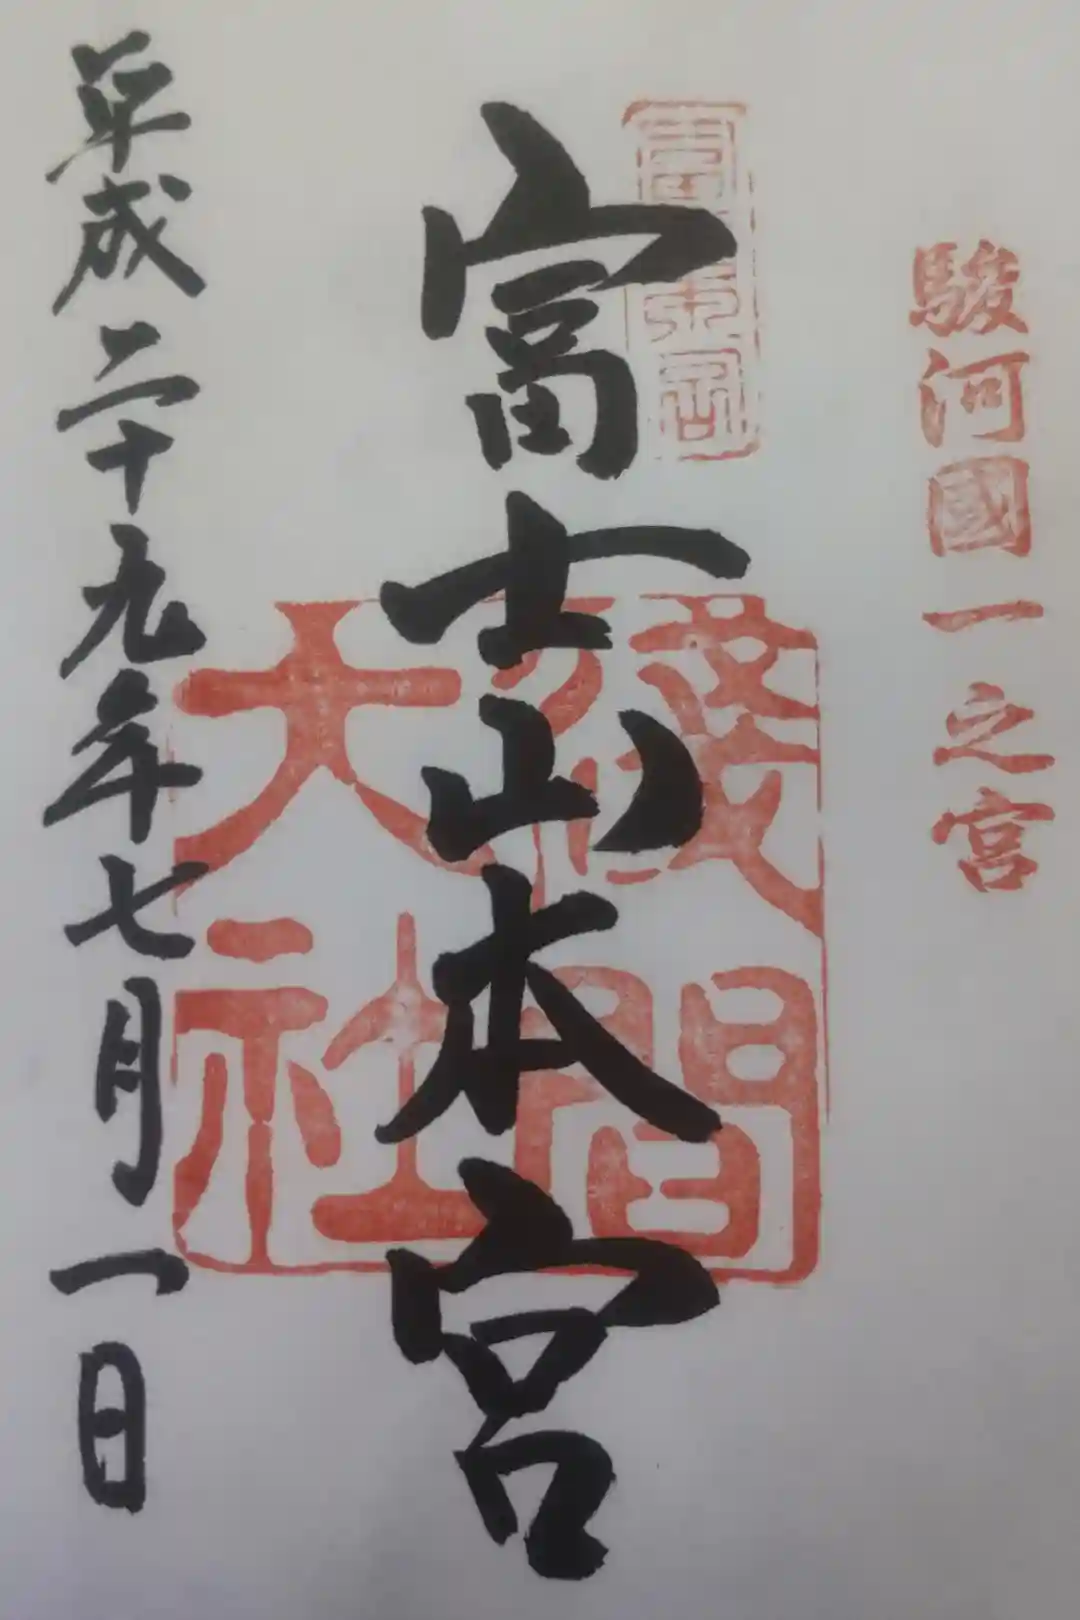 駿河國一之宮
富士山本宮
淺間大社
平成二十九年七月一日